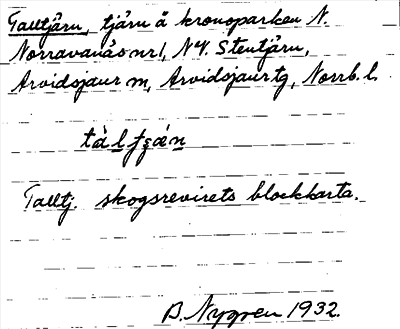 Talltjärn, tjärn å kronoparken N.
Norravavåsnr1, NV. Stentjärn,
Arvidsjaur m, Arvidsjaur tg, Norrb. l.
Talltj. skogsrevirets blockkarta.
B. Nygren 1932.